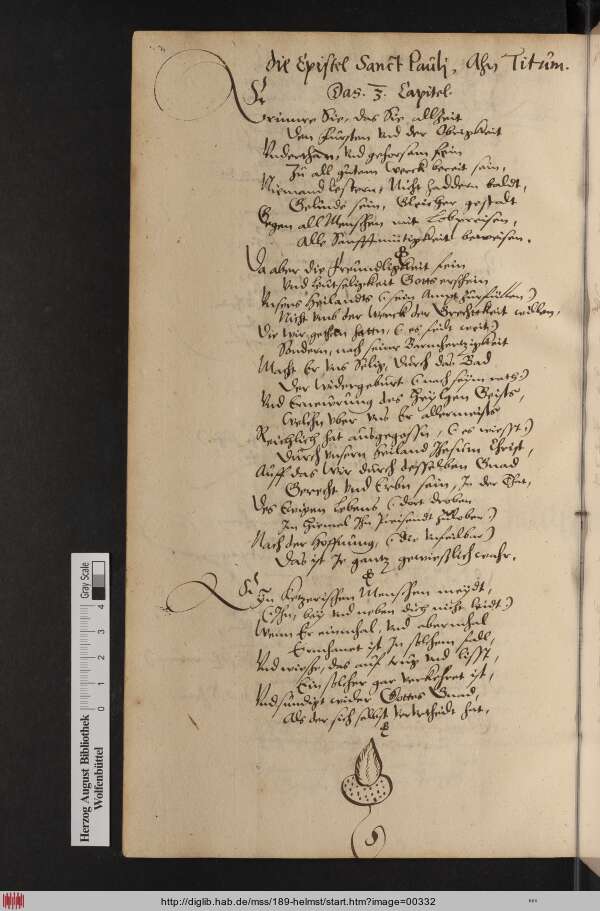 Die Epistel Sanct Pauli, Ahn Titum.
Das. 3. Capitel.
Erinnre Sie, das Sie allzeit
Den Fürsten und der Obrigkeit
Underthan, und gehorsam sein
Zu all gutem Werck bereit sein,
Niemand lestern, Nicht haddern baldt,
Gelinde sein, Gleicher gestalt
Gegen all Menschen mit Lobpreisen,
Alle Sanfftmütigkeit beweisen.
Da aber die Freundligkeit sein
Und Leutseligkeit Gotts erschein
Unsers Heilandts (: sein Ampt zurfüllen :)
Nicht umb der Werck der Grechtikeit willen,
Die wir gethan hattn, (: es feilt weit :)
Sondern, nach seiner Barmhertzigkeit
Macht Er uns Selig, durch das Bad
Der Widergeburt (: nach seim rath :)
Und Ernewrung des Heyligen Geists,
Welchn uber uns Er allermeists
Reichlich hat ausgegossn, (: es wiesst :)
Durch unsern Heiland Jhesum Christ,
Auff das Wir durch desselben Gnad
Gerecht und Erbn sein, In der That,
Des Ewigen Lebens (: dort droben
Im Himel Ihn Preisendt zu loben :)
Nach der Hoffnung, (: die unfeilbar :)
Das ist Je gantz gewisslich wahr.
Ein Ketzerischen Menschen meydt,
(: Ihn, bey und neben dich nicht leidt :)
Wenn Er einmhal, und abermhal
Ermhanet ist, In solchem fall,
Und wisse, das auf trug und lisst,
Ein solcher gar verkehret ist,
Und sündigt wider Gottes Gnad,
Als der sich selbst verurtheilt hat.
Gray Scale
0 1 2 3 4
Herzog August Bibliothek
Wolfenbüttel
http://diglib.hab.de/mss/189-helmst/start.htm?image=00332